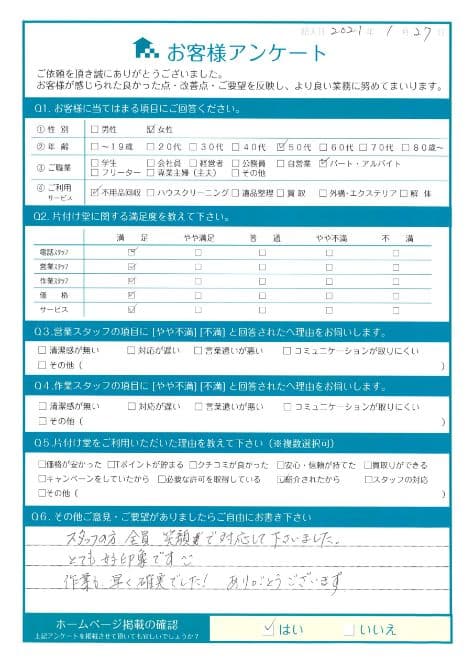 記入日 2021年 1月 27日
お客様アンケート
ご依頼を頂き誠にありがとうございました。
お客様が感じられた良かった点・改善点・ご要望を反映し、より良い業務に努めてまいります。
Q1. お客様に当てはまる項目にご回答ください。
① 性 別 □男性 ☑女性
② 年 齢 □～19歳 □20代 □30代 □40代 ☑50代 □60代 □70代 □80歳～
③ ご職業 □学生 □会社員 □経営者 □公務員 □自営業 ☑パート・アルバイト
□フリーター □専業主婦(主夫) □その他
④ ご利用サービス ☑不用品回収 □ハウスクリーニング □遺品整理 □買取 □外構・エクステリア □解体
Q2. 片付け堂に関する満足度を教えて下さい。
満足 やや満足 普通 やや不満 不満
電話スタッフ ☑ □ □ □ □
営業スタッフ ☑ □ □ □ □
作業スタッフ ☑ □ □ □ □
価格 ☑ □ □ □ □
サービス ☑ □ □ □ □
Q3.営業スタッフの項目に [やや不満] [不満] と回答されたへ理由をお伺いします。
□清潔感が無い □対応が遅い □言葉遣いが悪い □コミュニケーションが取りにくい
□その他( )
Q4.作業スタッフの項目に [やや不満] [不満] と回答されたへ理由をお伺いします。
□清潔感が無い □対応が遅い □言葉遣いが悪い □コミュニケーションが取りにくい
□その他( )
Q5.片付け堂をご利用いただいた理由を教えて下さい(※複数選択可)
□価格が安かった □Tポイントが貯まる □クチコミが良かった □安心・信頼が持てた □買取りができる
□キャンペーンをしていたから □必要な許可を取得している ☑紹介されたから □スタッフの対応
□その他( )
Q6. その他ご意見・ご要望がありましたらご自由にお書き下さい
スタッフの方 全員 笑顔で対応して下さいました。
とても好印象です
作業も 早く 確実でした! ありがとうございます
ホームページ掲載の確認
上記アンケートを掲載させて頂いても宜しいでしょうか?
☑はい □いいえ